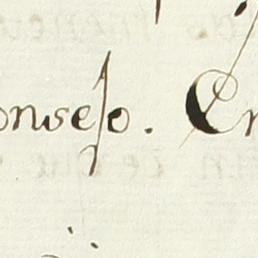 onsejo. En